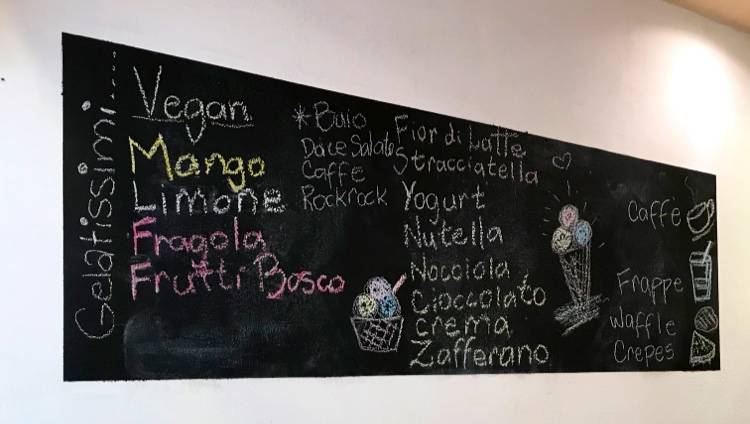 Gelatissimi....
Vegan
Mango
Limone
Fragola
Frutti Bosco
*Buio
Dolce Salato
Caffe
Rockrock
Fior di Latte
Stracciatella
Yogurt
Nutella
Nocciola
Cioccolato
crema
Zafferano
Caffè
Frappe
Waffle
Crepes